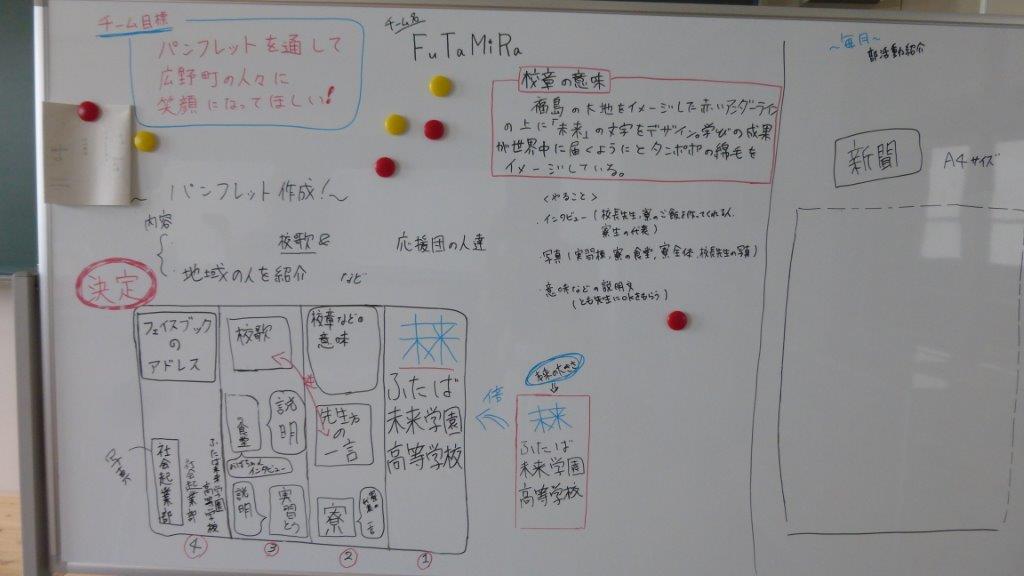 チーム目標
パンフレットを通して
広野町の人々に
笑顔になってほしい!
チーム名
FuTaMiRa
校章の意味
福島の大地をイメージした赤いアンダーライン
の上に「未来」の文字をデザイン。学びの成果
が世界中に届くようにとタンポポの綿毛を
イメージしている。
~パンフレット作成!~
内容
校歌&
応援団の人達
・地域の人を紹介 など
決定
<やること>
・インタビュー(校長先生,寮のご飯を作ってくれる人
寮生の代表)
・写真(実習棟,寮の食堂,寮全体,校長先生の写真)
・意味などの説明文
(とも先生にOKをもらう)
フェイスブック
の
アドレス
写真
社会起業部
ふたば未来学園
高等学校
社会起業部
④
校歌
逆
の食堂
説明
おばちゃん
インタビュー
説明
実習とう
③
校章などの
意味
先生方
の
一言
寮
②
未来
ふたば
未来学園
高等学校
①
倍
未来の大きさ
未来
ふたば
未来学園
高等学校
~毎月~
部活動紹介
新聞
A4サイズ